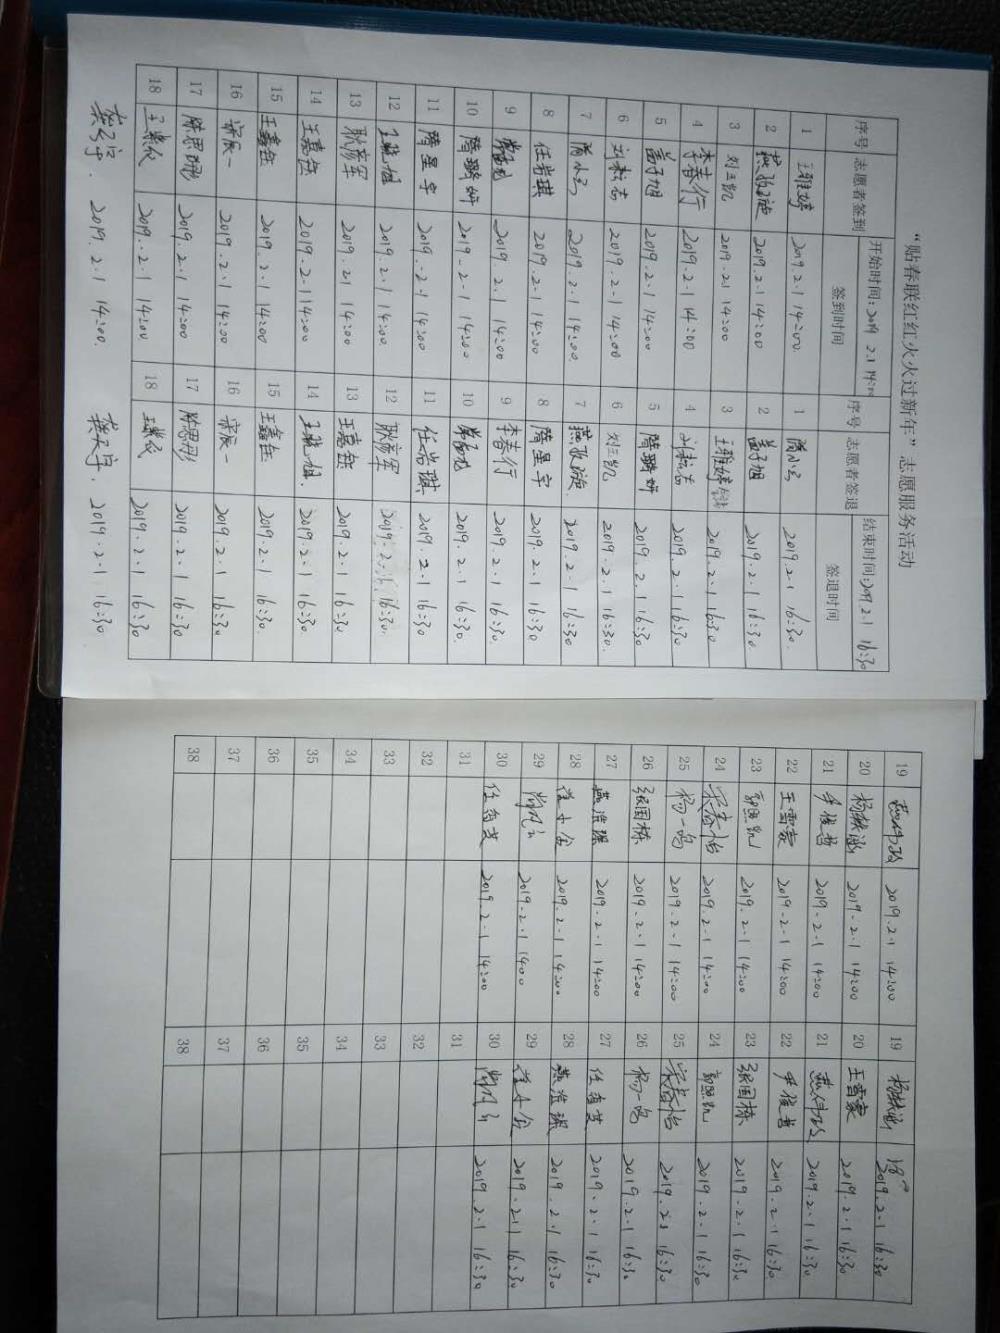 “贴春联红红火火过新年”志愿服务活动
开始时间：2019 2.1 14:00 结束时间：2019.2.1 16:30
序号 志愿者签到 签到时间 序号 志愿者签退 签退时间
1 王雅婷 2019.2.1 14:00 1 2019.2.1 16:30
2 2019.2.1 14:00 2 孟子旭 2019.2.1 16:30
3 刘三凯 2019.2.1 14:00 3 王雅婷 2019.2.1 16:30
4 李春行 2019.2.1 14:00 4 刘松志 2019.2.1 16:30
5 孟子旭 2019.2.1 14:00 5 隋璐妍 2019.2.1 16:30
6 刘松志 2019.2.1 14:00 6 刘三凯 2019.2.1 16:30
7 2019.2.1 14:00 7 2019.2.1 16:30
8 任岩琪 2019.2.1 14:00 8 隋星宇 2019.2.1 16:30
9 2019.2.1 14:00 9 李春行 2019.2.1 16:30
10 隋璐妍 2019.2.1 14:00 10 2019.2.1 16:30
11 隋星宇 2019.2.1 14:00 11 任岩琪 2019.2.1 16:30
12 王艳旭 2019.2.1 14:00 12 耿彦军 2019.2.1 16:30
13 耿彦军 2019.2.1 14:00 13 王嘉鈺 2019.2.1 16:30
14 王嘉鈺 2019.2.1 14:00 14 王艳旭 2019.2.1 16:30
15 王鑫鈺 2019.2.1 14:00 15 王鑫鈺 2019.2.1 16:30
16 宋辰一 2019.2.1 14:00 16 宋辰一 2019.2.1 16:30
17 陈思彤 2019.2.1 14:00 17 陈思彤 2019.2.1 16:30
18 2019.2.1 14:00 18 2019.2.1 16:30
2019.2.1 14:00 2019.2.1 16:30
19 2019.2.1 14:00 19 2019.2.1 16:30
20 2019.2.1 14:00 20 王雪豪 2019.2.1 16:30
21 尹俊哲 2019.2.1 14:00 21 2019.2.1 16:30
22 王雪豪 2019.2.1 14:00 22 尹俊哲 2019.2.1 16:30
23 郭照凯 2019.2.1 14:00 23 张国栋 2019.2.1 16:30
24 宋春怡 2019.2.1 14:00 24 郭照凯 2019.2.1 16:30
25 杨一鸣 2019.2.1 14:00 25 宋春怡 2019.2.1 16:30
26 张国栋 2019.2.1 14:00 26 杨一鸣 2019.2.1 16:30
27 2019.2.1 14:00 27 2019.2.1 16:30
28 2019.2.1 14:00 28 2019.2.1 16:30
29 2019.2.1 14:00 29 2019.2.1 16:30
30 2019.2.1 14:00 30 2019.2.1 16:30
31 31
32 32
33 33
34 34
35 35
36 36
37 37
38 38